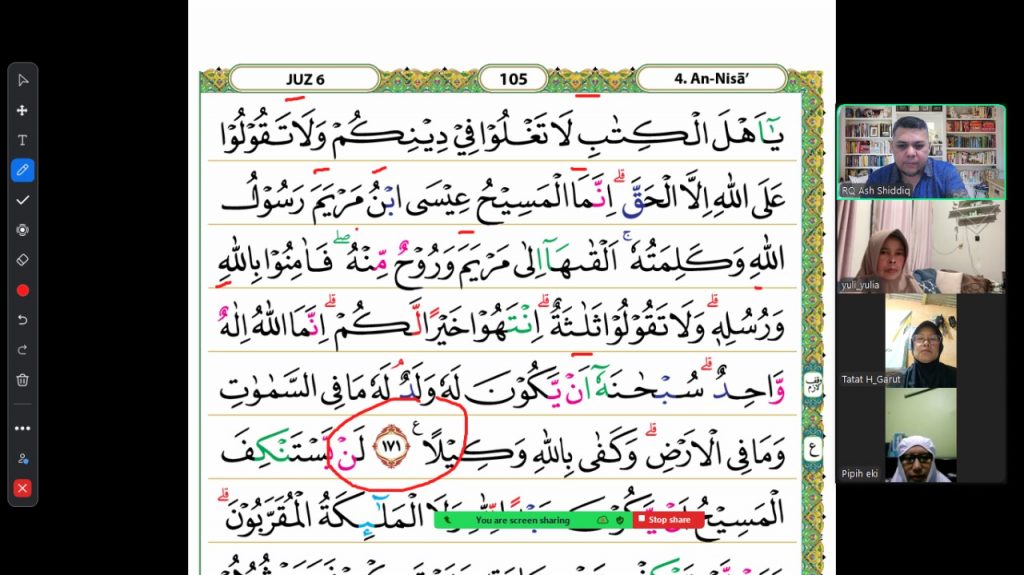 JUZ 6
105
4. An-Nisā’
يٰٓاَهْلَ الْكِتٰبِ لَا تَغْلُوْا فِيْ دِيْنِكُمْ وَلَا تَقُوْلُوْا
عَلَى اللّٰهِ اِلَّا الْحَقَّ ۗ اِنَّمَا الْمَسِيْحُ عِيْسَى ابْنُ مَرْيَمَ رَسُوْلُ
اللّٰهِ وَكَلِمَتُهٗ ۚ اَلْقٰىهَآ اِلٰى مَرْيَمَ وَرُوْحٌ مِّنْهُ ۖ فَاٰمِنُوْا بِاللّٰهِ
وَرُسُلِهٖ ۗ وَلَا تَقُوْلُوْا ثَلٰثَةٌ ۗ اِنْتَهُوْا خَيْرًا لَّكُمْ ۗ اِنَّمَا اللّٰهُ اِلٰهٌ
وَّاحِدٌ ۗ سُبْحٰنَهٗٓ اَنْ يَّكُوْنَ لَهٗ وَلَدٌ ۘ لَهٗ مَا فِى السَّمٰوٰتِ
وَمَا فِى الْاَرْضِ ۗ وَكَفٰى بِاللّٰهِ وَكِيْلًا ࣖ ١٧١ لَنْ يَّسْتَنْكِفَ
الْمَسِيْحُ اَنْ يَّكُوْنَ عَبْدًا لِّلّٰهِ وَلَا الْمَلٰۤىِٕكَةُ الْمُقَرَّبُوْنَ ۗ
وقف لازم
ع
You are screen sharing
Stop share
RQ Ash Shiddiq
yuli_yulia
Tatat H_Garut
Pipih eki
T